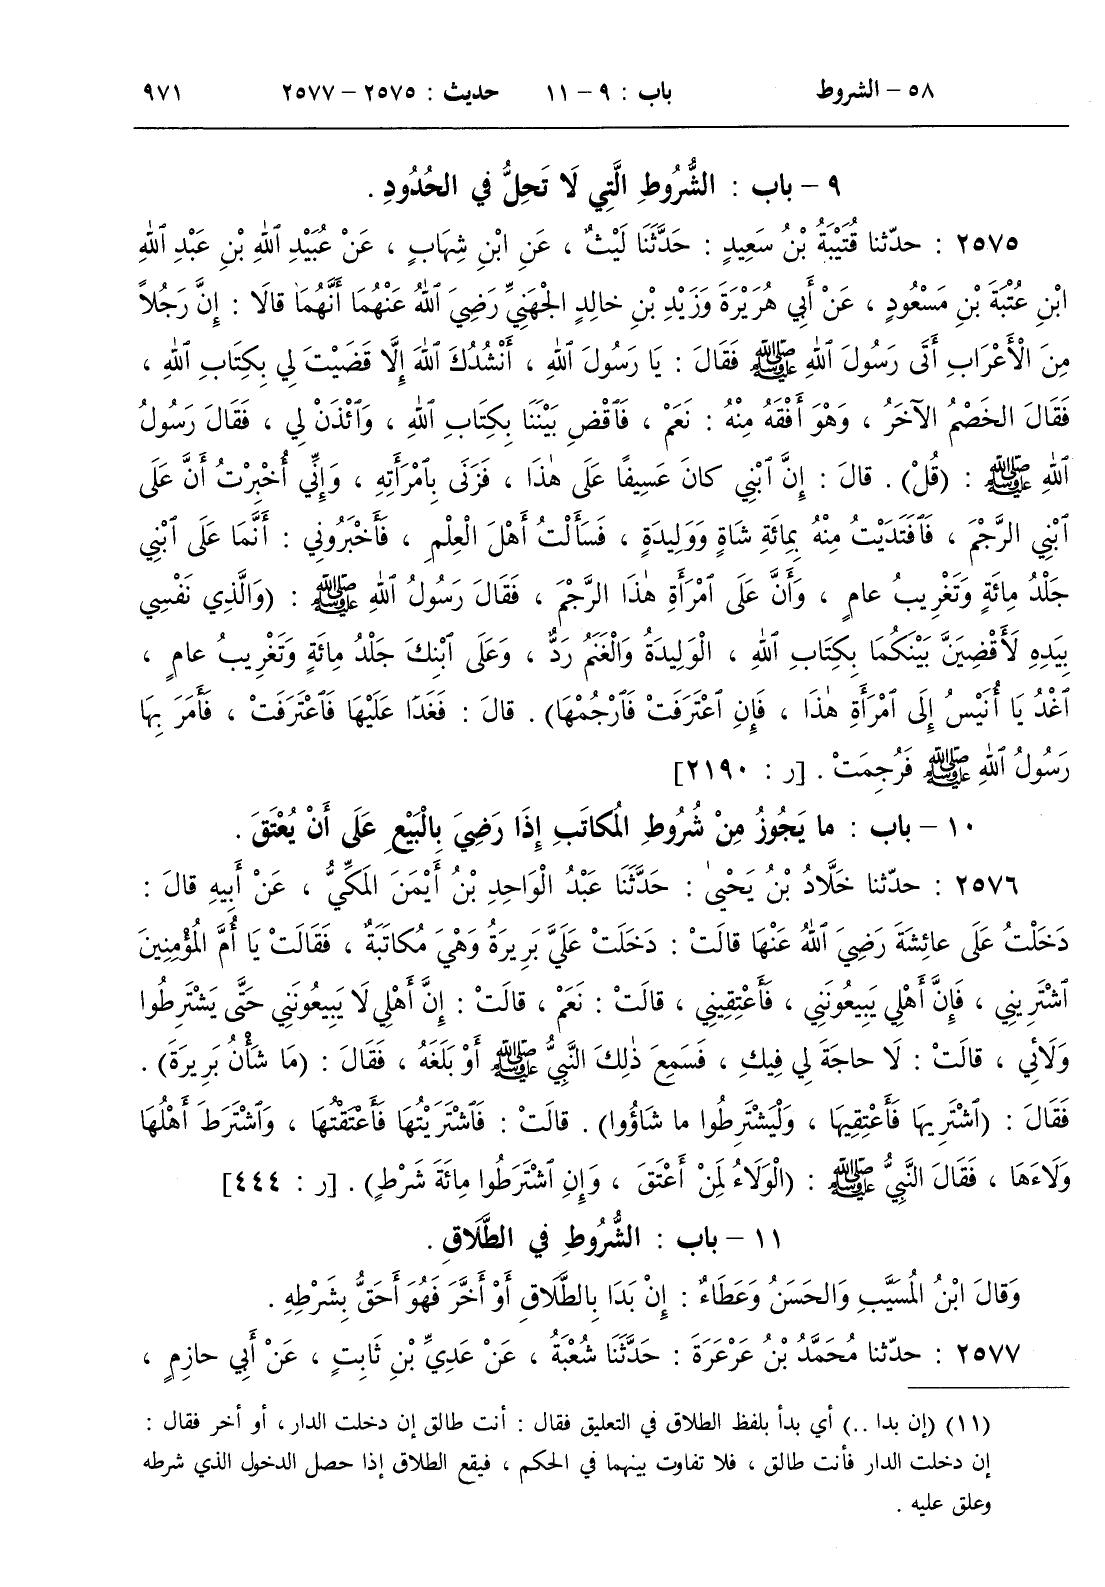 ٥٨ – الشروط باب : ٩ – ١١ حديث : ٢٥٧٥ – ٢٥٧٧ ٩٧١
٩ – باب : الشُّرُوطِ الَّتِي لَا تَحِلُّ في الحُدُودِ .
٢٥٧٥ : حدّثنا قُتَيْبَةُ بْنُ سَعِيدٍ : حَدَّثَنَا لَيْثٌ ، عَنِ ابْنِ شِهَابٍ ، عَنْ عُبَيْدِ ٱللهِ بْنِ عَبْدِ ٱللهِ
ابْنِ عُتْبَةَ بْنِ مَسْعُودٍ ، عَنْ أَبِي هُرَيْرَةَ وَزَيْدِ بْنِ خالِدٍ الجُهَنِيِّ رَضِيَ ٱللهُ عَنْهُمَا أَنَّهُمَا قالَا : إِنَّ رَجُلاً
مِنَ الْأَعْرَابِ أَتَى رَسُولَ ٱللهِ ﷺ فَقَالَ : يَا رَسُولَ ٱللهِ ، أَنْشُدُكَ ٱللهَ إِلَّا قَضَيْتَ لِي بِكِتَابِ ٱللهِ ،
فَقَالَ الخَصْمُ الآخَرُ ، وَهْوَ أَفْقَهُ مِنْهُ : نَعَمْ ، فَٱقْضِ بَيْنَنَا بِكِتَابِ ٱللهِ ، وَٱئْذَنْ لِي ، فَقَالَ رَسُولُ
ٱللهِ ﷺ : (قُلْ) . قالَ : إِنَّ ٱبْنِي كانَ عَسِيفًا عَلَى هٰذَا ، فَزَنَى بِٱمْرَأَتِهِ ، وَإِنِّي أُخْبِرْتُ أَنَّ عَلَى
ٱبْنِي الرَّجْمَ ، فَٱفْتَدَيْتُ مِنْهُ بِمائَةِ شَاةٍ وَوَلِيدَةٍ ، فَسَأَلْتُ أَهْلَ الْعِلْمِ ، فَأَخْبَرُونِي : أَنَّمَا عَلَى ٱبْنِي
جَلْدُ مِائَةٍ وَتَغْرِيبُ عامٍ ، وَأَنَّ عَلَى ٱمْرَأَةِ هٰذَا الرَّجْمَ ، فَقَالَ رَسُولُ ٱللهِ ﷺ : (وَالَّذِي نَفْسِي
بِيَدِهِ لَأَقْضِيَنَّ بَيْنَكُمَا بِكِتَابِ ٱللهِ ، الْوَلِيدَةُ وَالْغَنَمُ رَدٌّ ، وَعَلَى ٱبْنِكَ جَلْدُ مِائَةٍ وَتَغْرِيبُ عامٍ ،
ٱغْدُ يَا أُنَيْسُ إِلَى ٱمْرَأَةِ هٰذَا ، فَإِنِ ٱعْتَرَفَتْ فَٱرْجُمْهَا) . قالَ : فَغَدَا عَلَيْهَا فَٱعْتَرَفَتْ ، فَأَمَرَ بِهَا
رَسُولُ ٱللهِ ﷺ فَرُجِمَتْ . [ر : ٢١٩٠]
١٠ – باب : ما يَجُوزُ مِنْ شُرُوطِ المُكاتَبِ إِذَا رَضِيَ بِالْبَيْعِ عَلَى أَنْ يُعْتَقَ .
٢٥٧٦ : حدّثنا خَلَّادُ بْنُ يَحْيىٰ : حَدَّثَنَا عَبْدُ الْوَاحِدِ بْنُ أَيْمَنَ المَكِّيُّ ، عَنْ أَبِيهِ قالَ :
دَخَلْتُ عَلَى عائِشَةَ رَضِيَ ٱللهُ عَنْهَا قالَتْ : دَخَلَتْ عَلَيَّ بَرِيرَةُ وَهْيَ مُكاتَبَةٌ ، فَقَالَتْ يَا أُمَّ المُؤْمِنِينَ
ٱشْتَرِينِي ، فَإِنَّ أَهْلِي يَبِيعُونَنِي ، فَأَعْتِقِينِي ، قالَتْ : نَعَمْ ، قالَتْ : إِنَّ أَهْلِي لَا يَبِيعُونَنِي حَتَّى يَشْتَرِطُوا
وَلَائِي ، قالَتْ : لَا حاجَةَ لِي فِيكِ ، فَسَمِعَ ذٰلِكَ النَّبِيُّ ﷺ أَوْ بَلَغَهُ ، فَقَالَ : (مَا شَأْنُ بَرِيرَةَ) .
فَقَالَ : (ٱشْتَرِيهَا فَأَعْتِقِيهَا ، وَلْيَشْتَرِطُوا ما شَاؤُوا) . قالَتْ : فَٱشْتَرَيْتُهَا فَأَعْتَقْتُهَا ، وَٱشْتَرَطَ أَهْلُهَا
وَلَاءَهَا ، فَقَالَ النَّبِيُّ ﷺ : (الْوَلَاءُ لِمَنْ أَعْتَقَ ، وَإِنِ ٱشْتَرَطُوا مِائَةَ شَرْطٍ) . [ر : ٤٤٤]
١١ – باب : الشُّرُوطِ في الطَّلَاقِ .
وَقالَ ابْنُ المُسَيَّبِ وَالحَسَنُ وَعَطَاءٌ : إِنْ بَدَا بِالطَّلَاقِ أَوْ أَخَّرَ فَهُوَ أَحَقُّ بِشَرْطِهِ .
٢٥٧٧ : حدّثنا مُحَمَّدُ بْنُ عَرْعَرَةَ : حَدَّثَنَا شُعْبَةُ ، عَنْ عَدِيِّ بْنِ ثَابِتٍ ، عَنْ أَبِي حازِمٍ ،
(١١) (إن بدا ..) أي بدأ بلفظ الطلاق في التعليق فقال : أنت طالق إن دخلت الدار ، أو أخر فقال :
إن دخلت الدار فأنت طالق ، فلا تفاوت بينهما في الحكم ، فيقع الطلاق إذا حصل الدخول الذي شرطه
وعلق عليه .